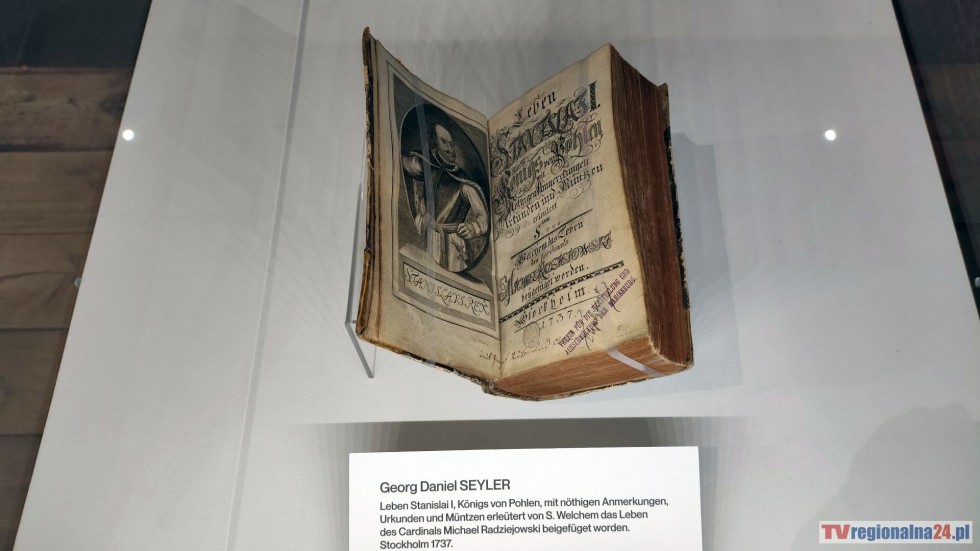 STANISLAUS REX
Leben
STANISLAI I.
Königs von Pohlen
mit
Nöthigen Anmerckungen
Urkunden und Müntzen
erleütert
von
S....
Welchem das Leben
des Cardinals
beygefüget worden.
Stockholm.
1737.
VEREIN FÜR DIE HERSTELLUNG UND
AUSSCHMÜCKUNG DER MARIENBURG.
Georg Daniel SEYLER
Leben Stanislai I, Königs von Pohlen, mit nöthigen Anmerkungen,
Urkunden und Müntzen erleütert von S. Welchem das Leben
des Cardinals Michael Radziejowski beigefüget worden.
Stockholm 1737.
TVregionalna24.pl